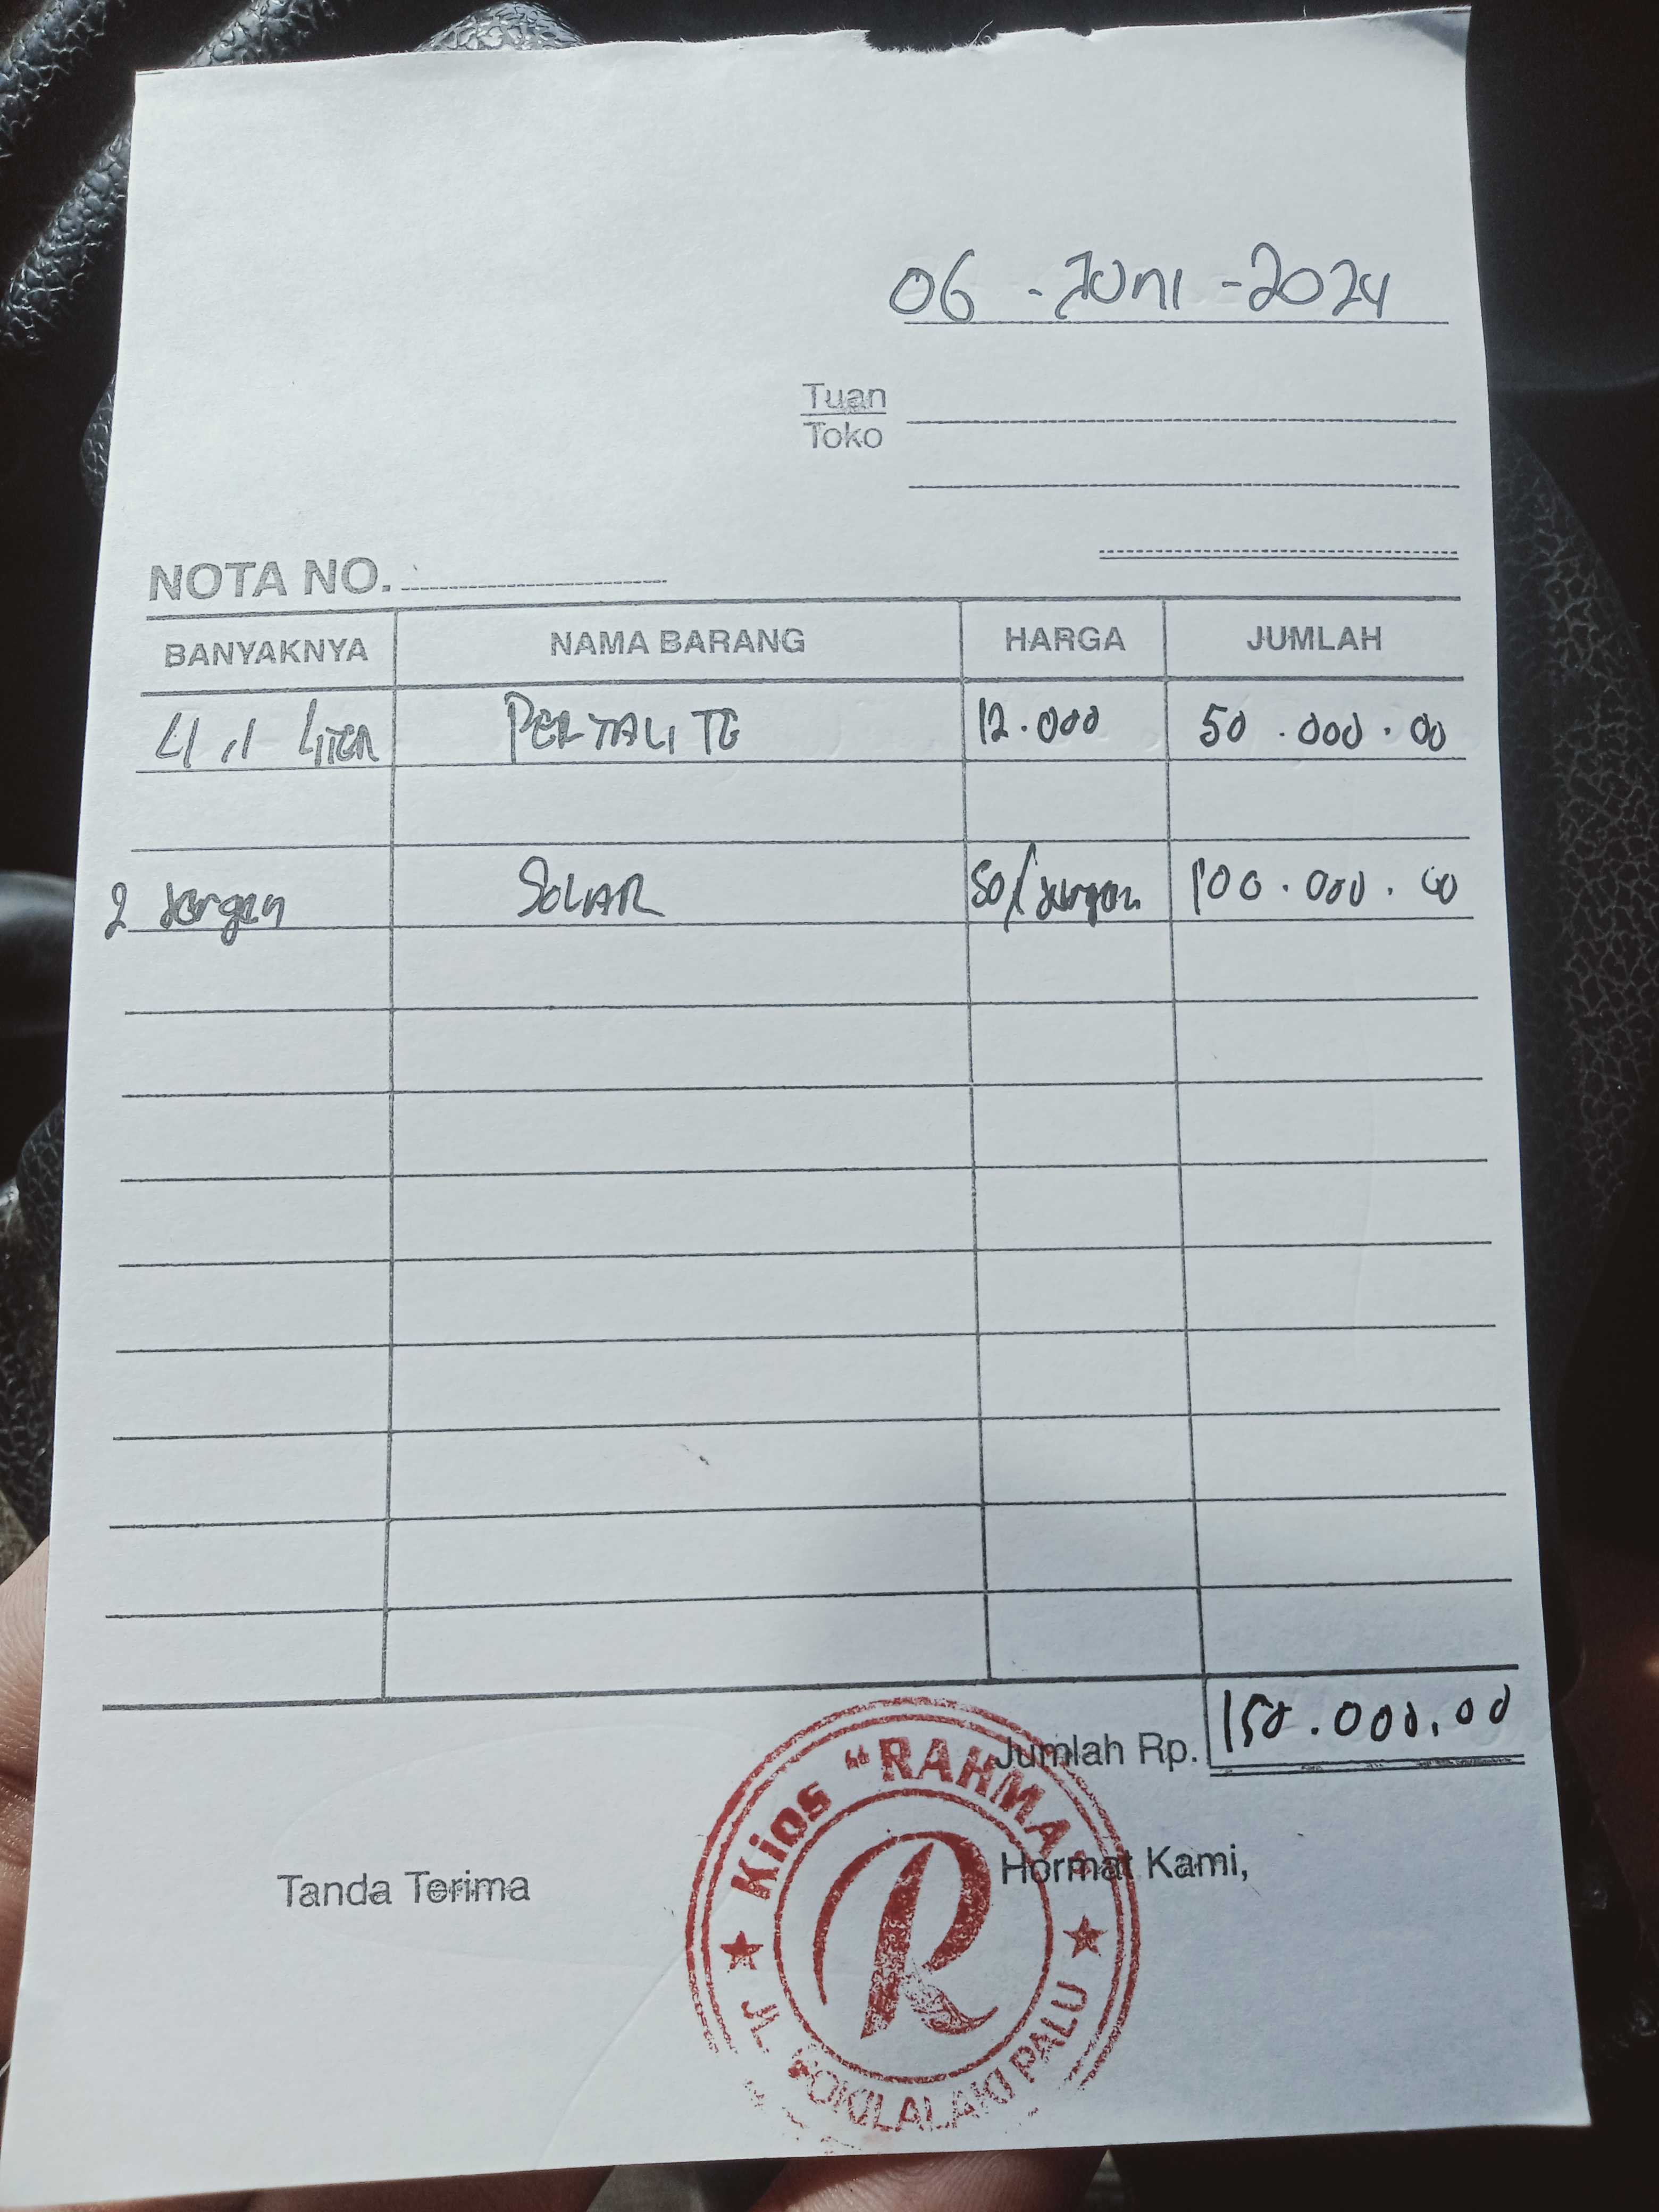 06 - JUNI - 2024
Tuan
Toko
NOTA NO.
BANYAKNYA NAMA BARANG HARGA JUMLAH
4,1 LITER PERTALITE 12.000 50.000.00
2 Jergen SOLAR 50/Jergen 100.000.00
Jumlah Rp. 150.000,00
Tanda Terima Hormat Kami,
Kios "RAHMA"
R
JL. NOKILALAKI PALU